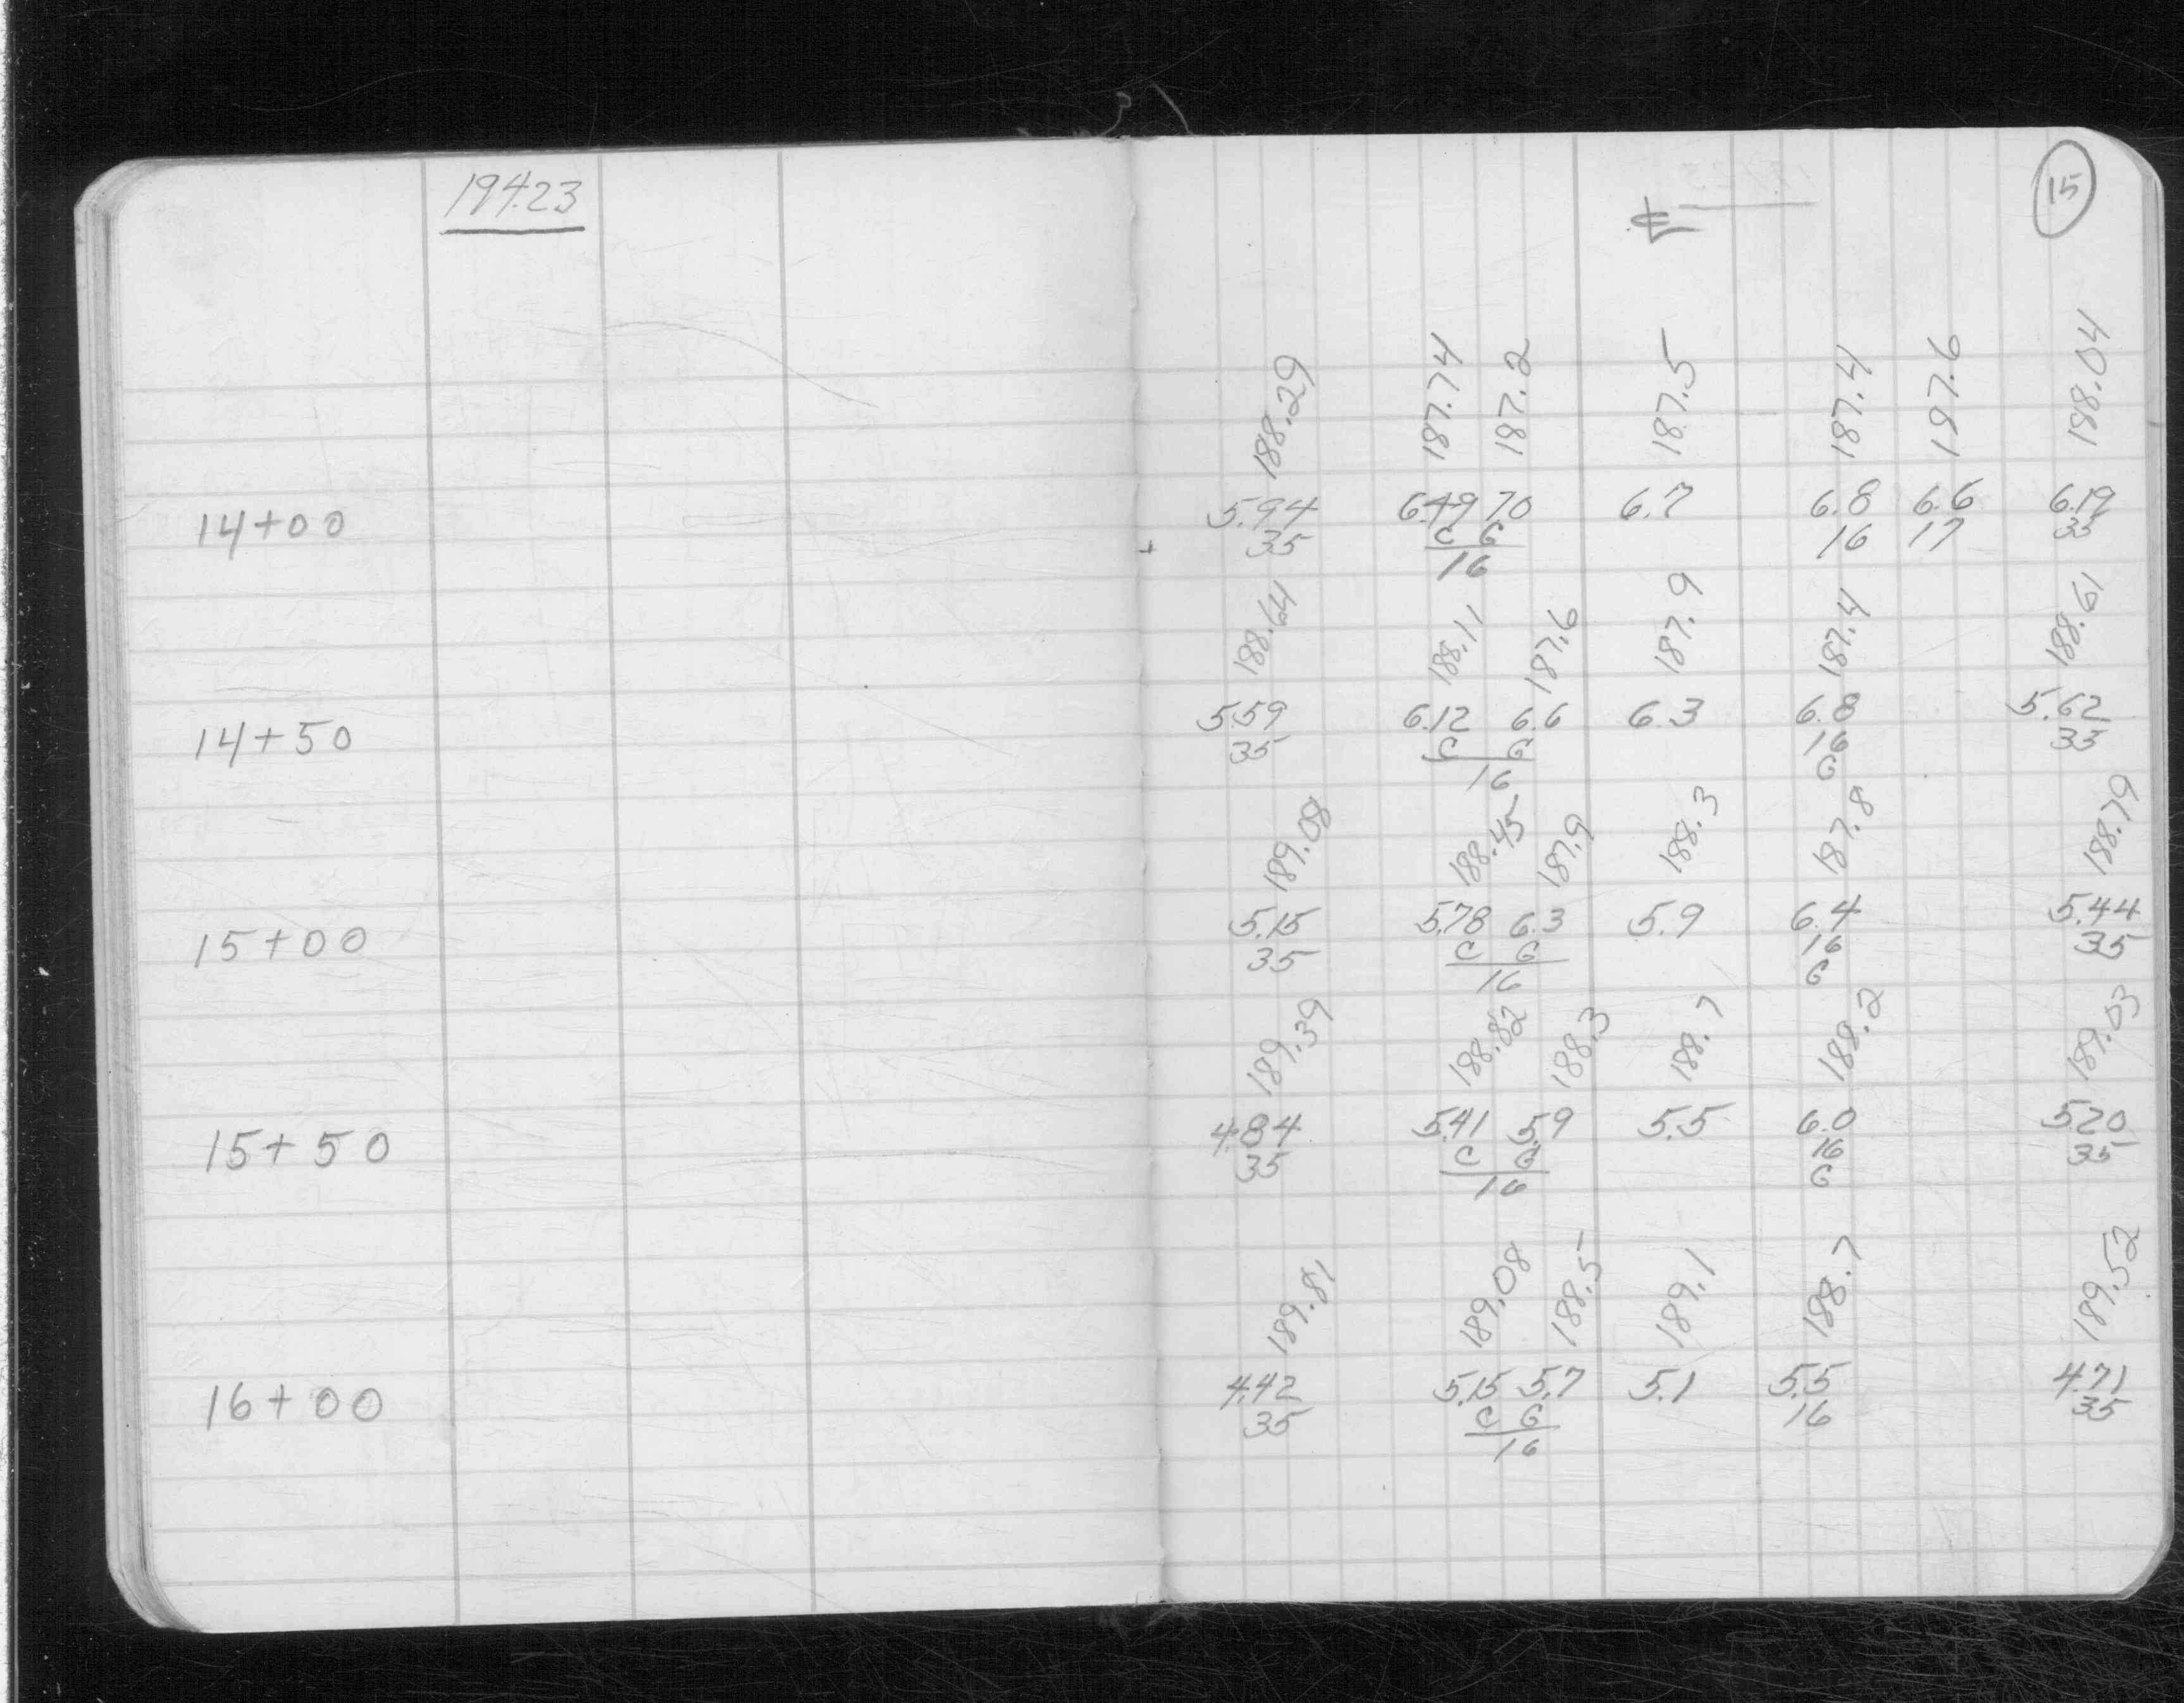 194.23
15
℄
188.29 187.74 187.2 187.5 187.4 197.6 188.04
14+00 5.94 6.49 70 6.7 6.8 6.6 6.19
35 C G 16 17 35
16
188.64 188.11 187.6 187.9 187.4 188.61
14+50 5.59 6.12 6.6 6.3 6.8 5.62
35 C G 16 35
16 G
189.08 188.45 187.9 188.3 187.8 188.79
15+00 5.15 5.78 6.3 5.9 6.4 5.44
35 C G 16 35
16 G
189.39 188.82 188.3 188.7 188.2 189.03
15+50 4.84 5.41 5.9 5.5 6.0 5.20
35 C G 16 35
16 G
189.81 189.08 188.5 189.1 188.7 189.52
16+00 4.42 5.15 5.7 5.1 5.5 4.71
35 C G 16 35
16